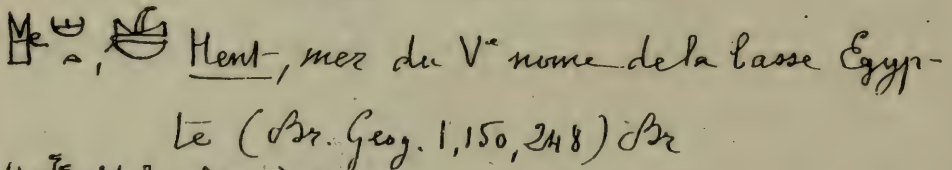 Hent, mer du Ve nome de la basse Egyp-
te (Br. Geog. 1,150,248) Br